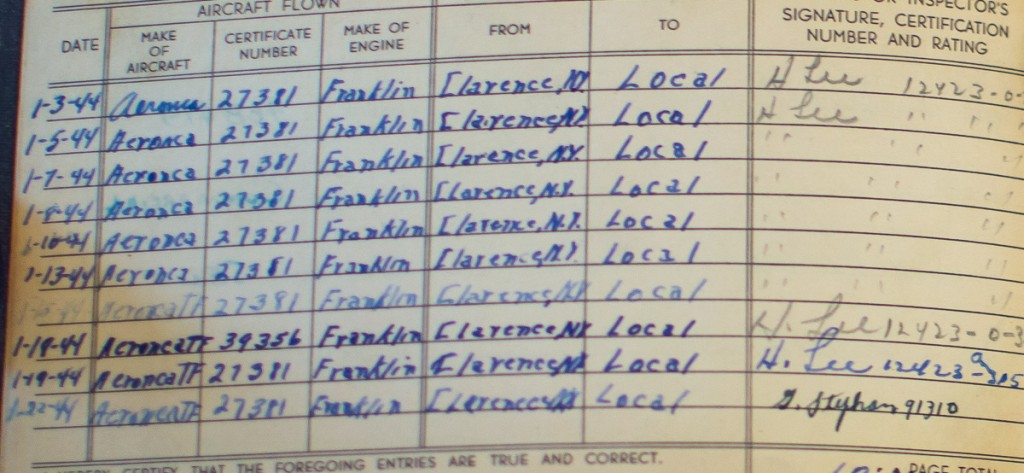 AIRCRAFT FLOWN INSPECTOR'S
DATE MAKE OF AIRCRAFT CERTIFICATE NUMBER MAKE OF ENGINE FROM TO SIGNATURE, CERTIFICATION NUMBER AND RATING
1-3-44 Aeronca 27381 Franklin Clarence, NY. Local H Lee 12423-0-
1-5-44 Aeronca 27381 Franklin Clarence, NY Local H Lee " "
1-7-44 Aeronca 27381 Franklin Clarence, N.Y. Local " " "
1-8-44 Aeronca 27381 Franklin Clarence, N.Y. Local " " "
1-10-44 Aeronca 27381 Franklin Clarence, N.Y. Local " " "
1-13-44 Aeronca 27381 Franklin Clarence, N.Y. Local " " "
AeroncaTF 27381 Franklin Clarence, NY Local " " "
1-19-44 AeroncaTF 39356 Franklin Clarence, NY Local H. Lee 12423-0-3
1-19-44 AeroncaTF 27381 Franklin Clarence, NY Local H. Lee 12423
1-22-44 AeroncaTF 27381 Franklin Clarence, NY Local 91310
CERTIFY THAT THE FOREGOING ENTRIES ARE TRUE AND CORRECT. PAGE TOTAL